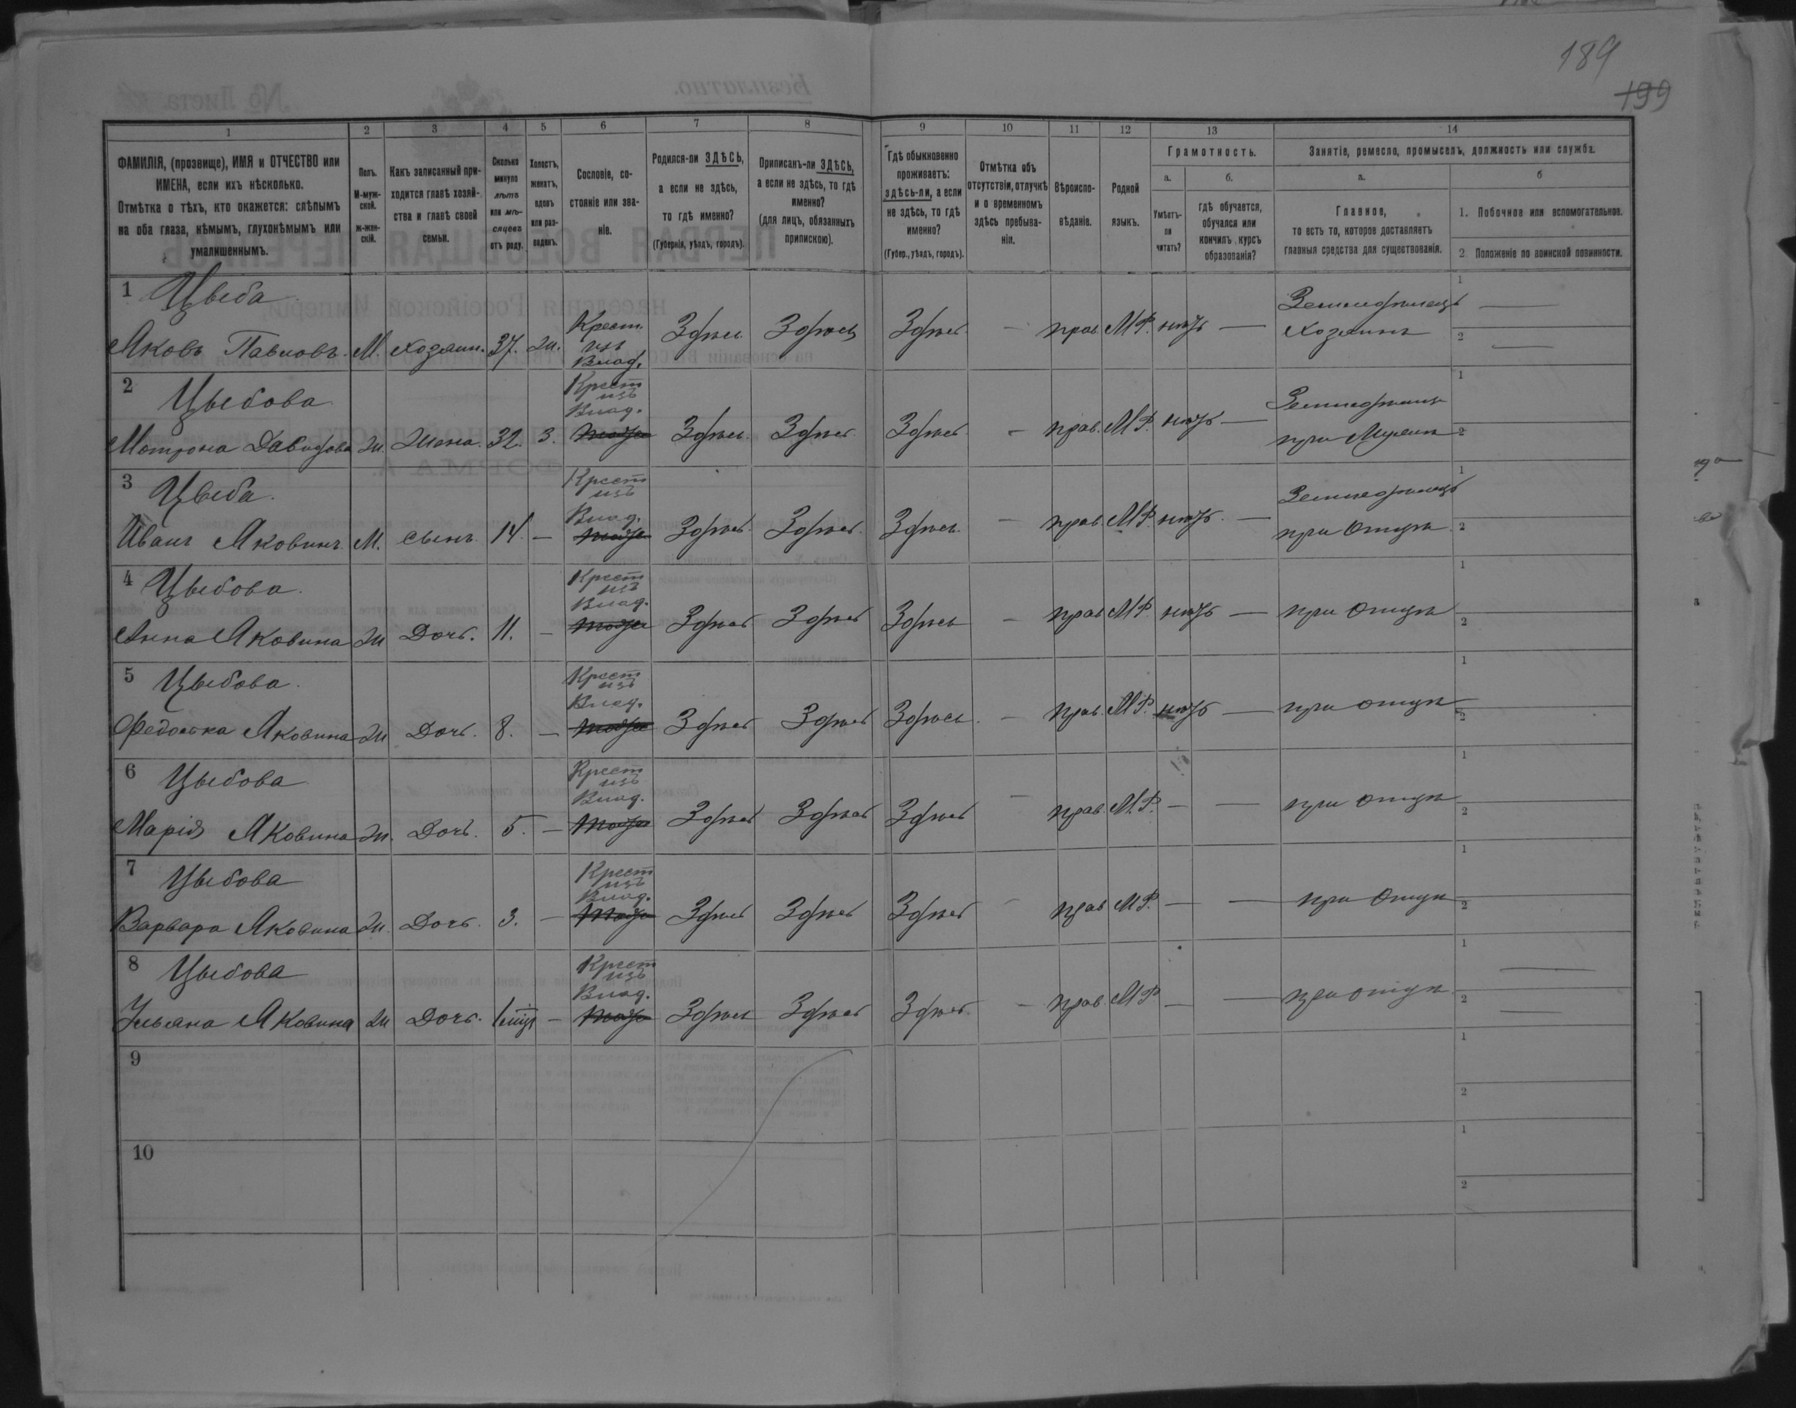 189
199
1 2 3 4 5 6 7 8 9 10 11 12 13 14
ФАМИЛІЯ, (прозвище), ИМЯ и ОТЧЕСТВО или
ИМЕНА, если ихъ нѣсколько.
Отмѣтка о тѣхъ, кто окажется: слѣпымъ
на оба глаза, нѣмымъ, глухонѣмымъ или
умалишеннымъ.
Полъ.
М-муж-
ской.
ж-жен-
скій.
Какъ записанный при-
ходится главѣ хозяй-
ства и главѣ своей
семьи.
Сколько
минуло
лѣтъ
или мѣ-
сяцевъ
отъ роду.
Холостъ,
женатъ,
вдовъ
или раз-
веденъ.
Сословіе, со-
стояніе или зва-
ніе.
Родился-ли ЗДѢСЬ,
а если не здѣсь,
то гдѣ именно?
(Губернія, уѣздъ, городъ).
Приписанъ-ли ЗДѢСЬ,
а если не здѣсь, то гдѣ
именно?
(для лицъ, обязанныхъ
припискою).
Гдѣ обыкновенно
проживаетъ:
здѣсь-ли, а если
не здѣсь, то гдѣ
именно?
(Губер., уѣздъ, городъ).
Отмѣтка объ
отсутствіи, отлучкѣ
и о временномъ
здѣсь пребыва-
ніи.
Вѣроиспо-
вѣданіе.
Родной
языкъ.
Грамотность.
а.
Умѣетъ-
ли
читать?
б.
гдѣ обучается,
обучался или
кончилъ курсъ
образованія?
Занятіе, ремесло, промыселъ, должность или служба.
а.
Главное,
то есть то, которое доставляетъ
главныя средства для существованія.
б
1. Побочное или вспомогательное.
2. Положеніе по воинской повинности.
1 Цыба
Яковъ Павловъ. М. Хозяин. 37. ж. Крест. изъ Влад. Здѣсь Здѣсь Здѣсь — прав. М.Р. нѣтъ — Земледѣлецъ Хозяинъ 1 — 2 —
2 Цыбова
Мотрона Давидова ж. Жена. 32. З. Крест изъ Влад. Здѣсь Здѣсь Здѣсь — прав. М.Р. нѣтъ — при Мужѣ 1 2
3 Цыба.
Иванъ Яковинъ М. сынъ 14 — Крест изъ Влад. Здѣсь Здѣсь Здѣсь — прав. М.Р. нѣтъ — Земледѣлецъ при Отцѣ 1 2
4 Цыбова.
Анна Яковина ж Дочь. 11. — Крест изъ Влад. Здѣсь Здѣсь Здѣсь — прав. М.Р. нѣтъ — при Отцѣ 1 2
5 Цыбова.
Федоска Яковина ж Дочь. 8. — Крест изъ Влад. Здѣсь Здѣсь Здѣсь — прав. М.Р. нѣтъ — при отцѣ 1 2
6 Цыбова
Марія Яковина ж. Дочь. 5. — Крест изъ Влад. Здѣсь Здѣсь Здѣсь — прав. М.Р. — — при отцѣ 1 2
7 Цыбова
Варвара Яковина ж. Дочь. 3. — Крест изъ Влад. Здѣсь Здѣсь Здѣсь — прав. М.Р. — — при Отцѣ 1 2
8 Цыбова
Ульяна Яковина ж Дочь. — Крест изъ Влад. Здѣсь Здѣсь Здѣсь — прав. М.Р. — — при отцѣ 1 — 2 —
9 1 2
10 1 2